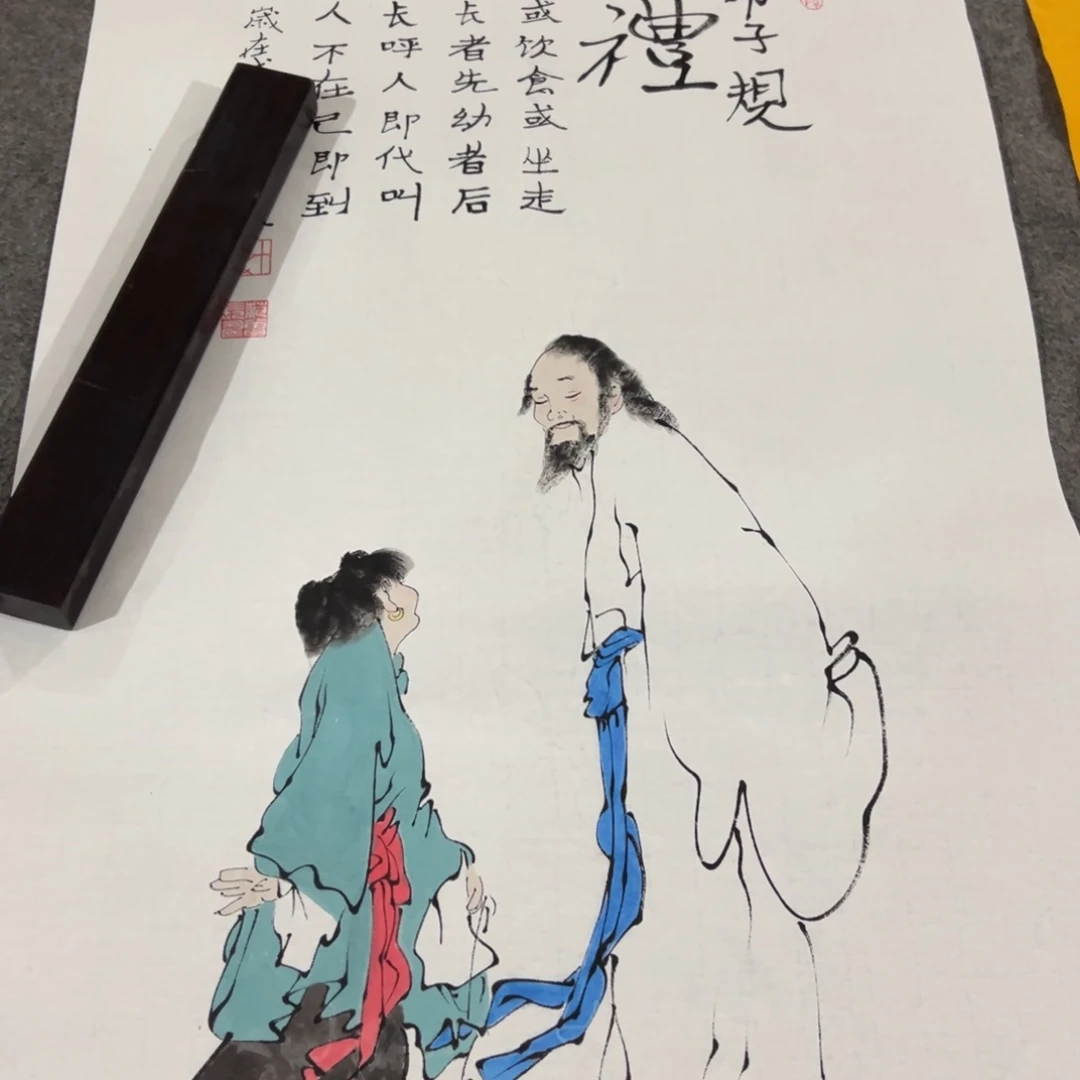 弟子規
禮
或饮食或坐走
长者先幼者后
长呼人即代叫
人不在己即到
歲在